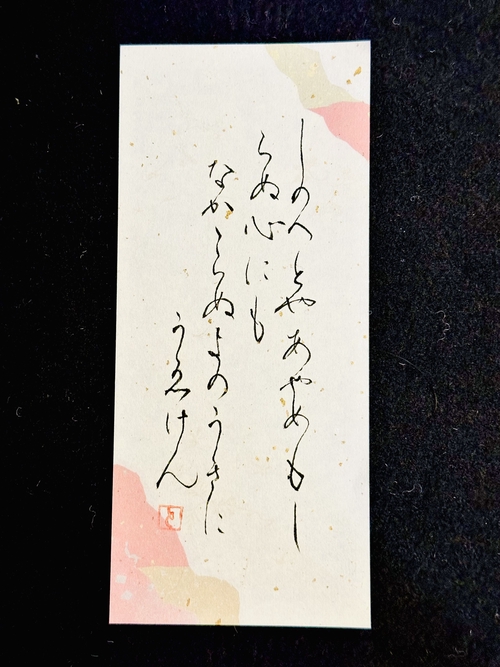 しのへとやあやめもし
らぬ心にも
なかゝらぬよのうきに
うゑけん